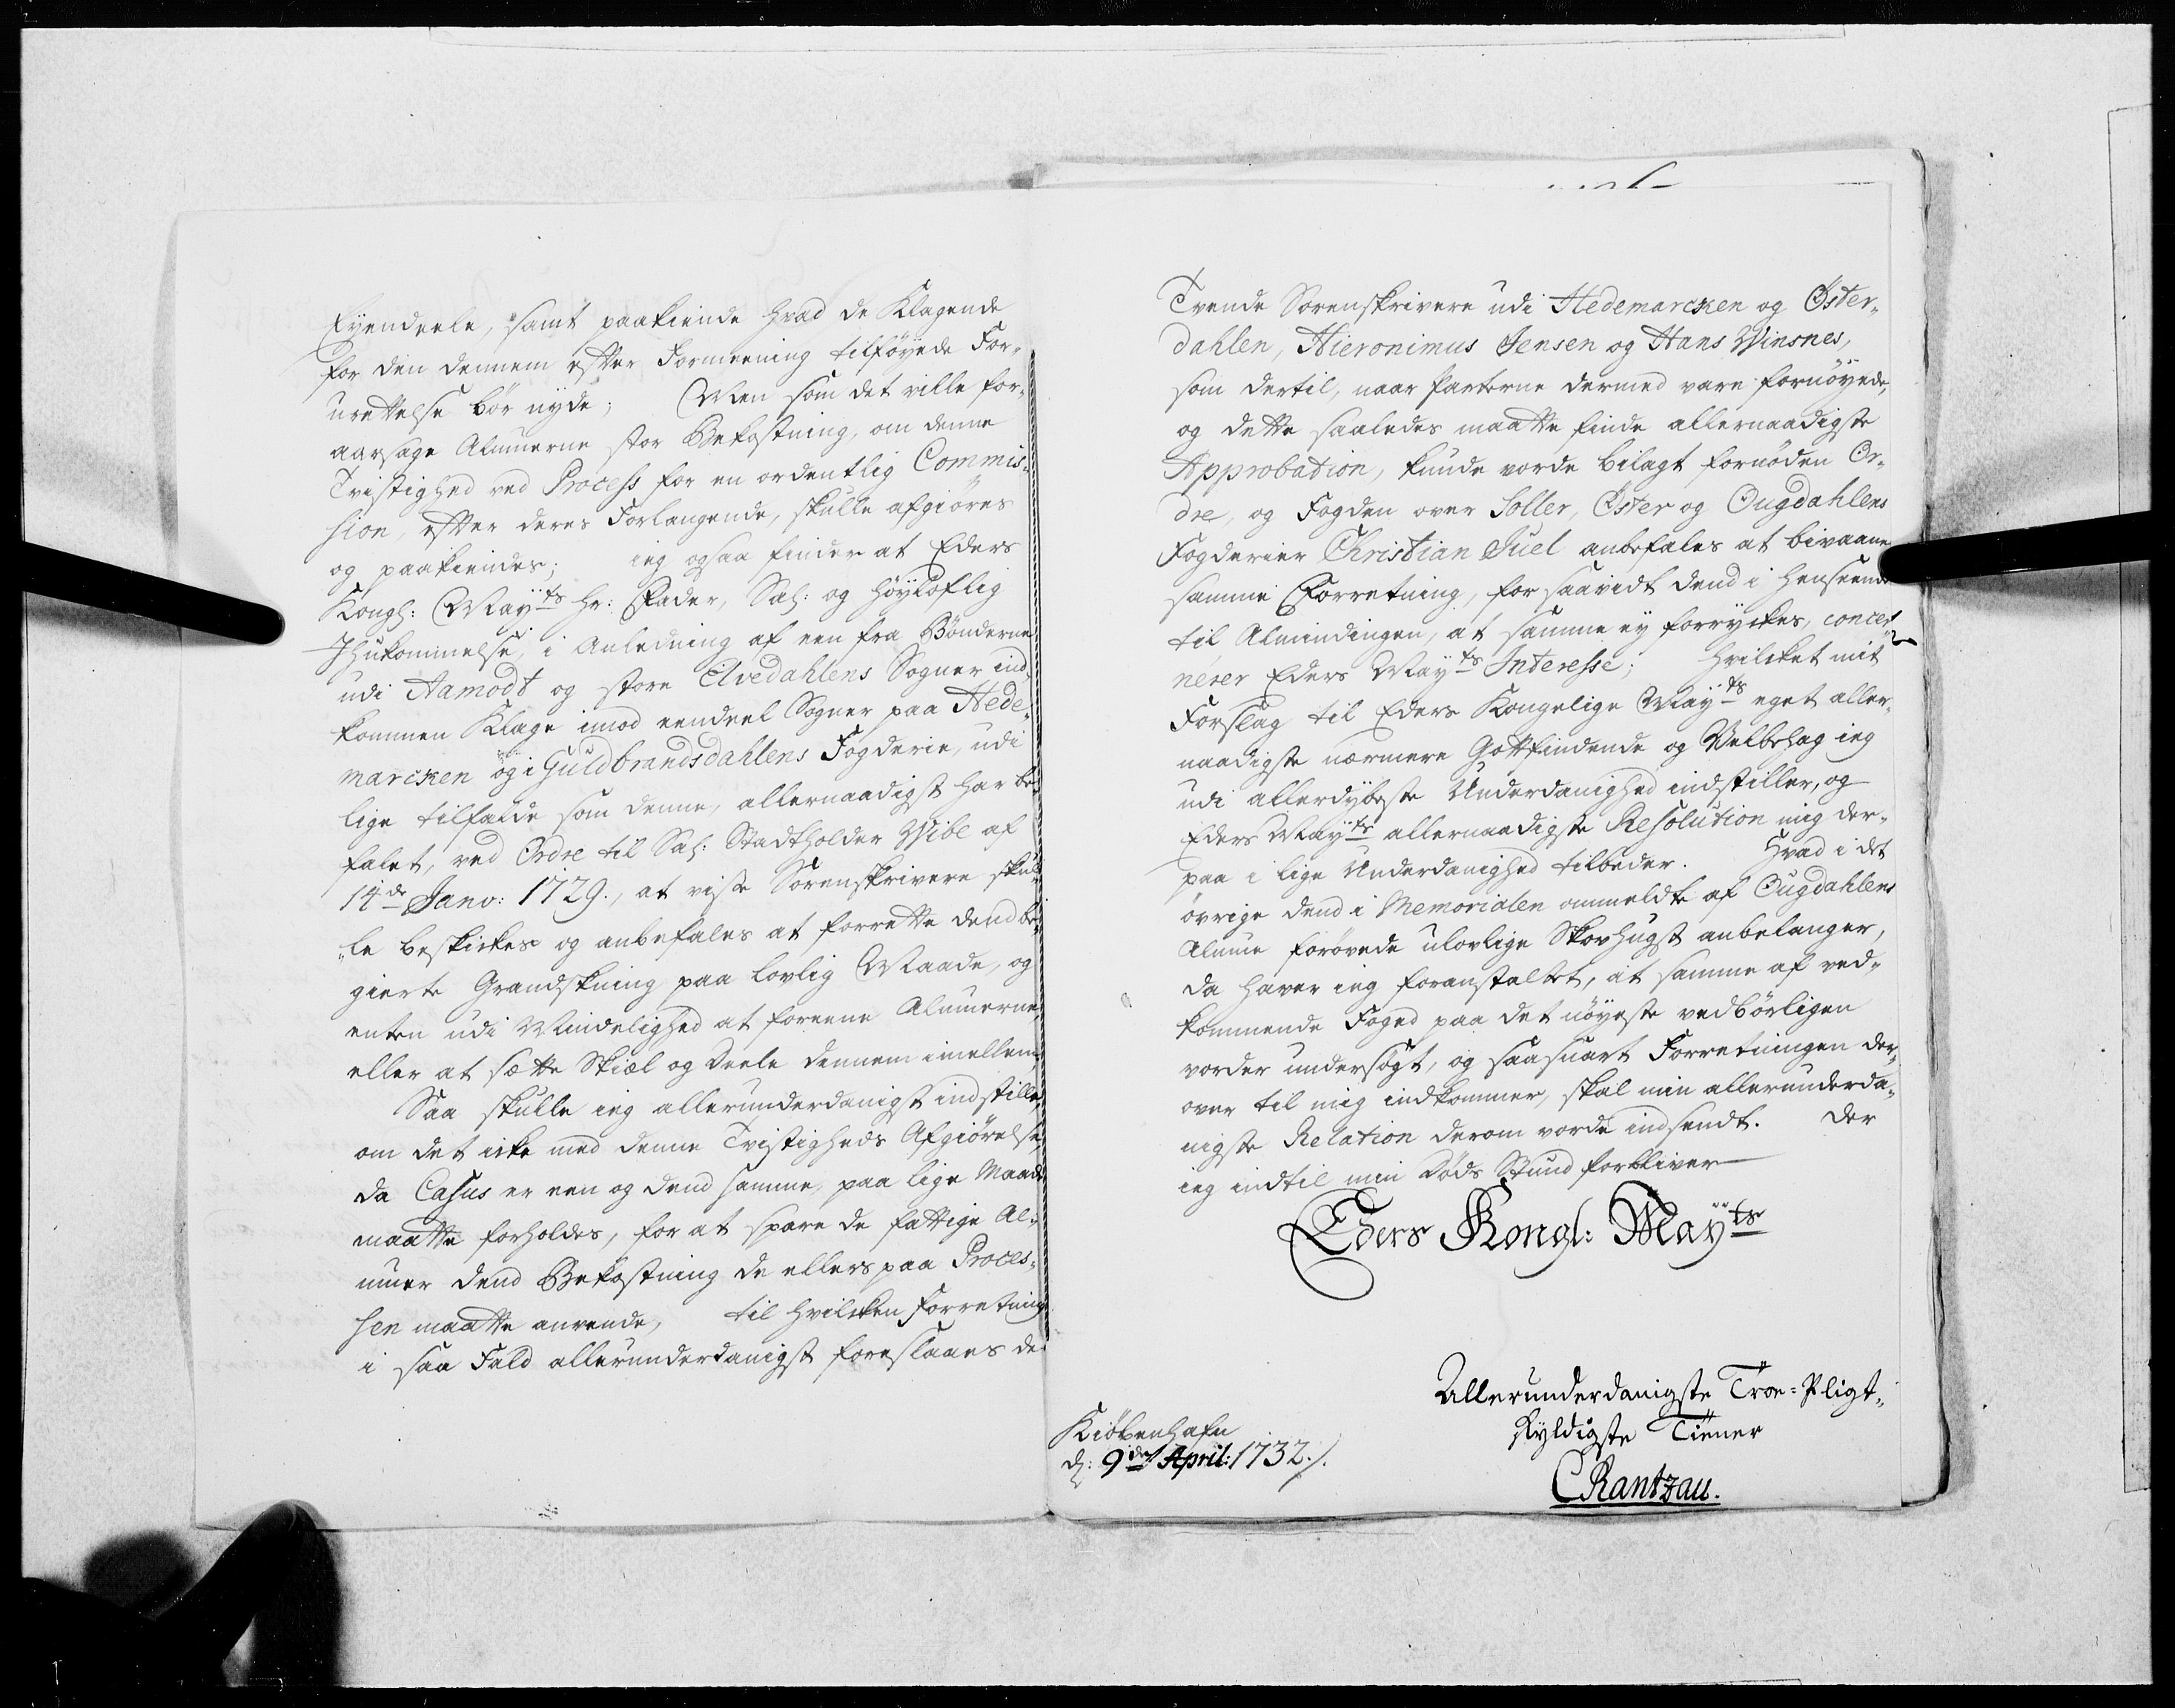 Eyendeele, samt paakiende hvad de Klagende
for den dennem efter Formeening tilföyede For-
urettelse bör nyde; Men som det ville for-
aarsage Almuerne stor Bekostning, om denne
Tvistighed ved Process for en ordentlig Commis-
sion, efter deres Forlangende, skulle afgiöres
og paakiendes; ieg ogsaa finder at Eders
Kongl: Mayts Hr: Fader, Sal: og Höyloflig
Ihukommelse, i Anledning af een fra Bönderne
udi Aamodt og store Elvedahlens Sogner ind-
kommen Klage imod eendeel Sogner paa Hede-
marcken og i Guldbrandsdahlens Fogderie, udi
lige tilfælde som denne, allernaadigst har be-
falet, ved Ordre til Sal: Stadtholder Wibe af
14de Janv: 1729., at visse Sorenskrivere skul-
le beskickes og anbefales at forrette dend be-
gierte Grandskning paa lovlig Maade, og
enten udi Mindelighed at foreene Almuerne,
eller at sætte Skiæl og Deele dennem imellem;
Saa skulle ieg allerunderdanigst indstille,
om det icke med denne Tvistigheds Afgiörelse,
da Casus er een og dend samme, paa lige Maade
maatte forholdes, for at spare de fattige Al-
muer dend Bekostning de ellers paa Proces-
sen maatte anvende, til hvilcken Forretning
i saa Fald allerunderdanigst foreslaaes de
Tvende Sorenskrivere udi Hedemarcken og Öster-
dahlen, Hieronimus Jensen og Hans Winsnes,
som dertil, naar Parterne dermed vare fornöyede,
og dette saaledes maatte finde allernaadigste
Approbation, kunde vorde bilagt fornöden Or-
dre, og Fogden over Soller, Öster og Ougdahlens
Fogderier Christian Juel anbefales at bivaane
samme Forretning, for saavidt dend i Henseende
til Almindingen, at samme ey forryckes, concer-
nerer Eders Mayts Interesse; Hvilcket mit
Forslag til Eders Kongelige Mayts eget aller-
naadigste nærmere Gottfindende og Velbehag ieg
udi allerdybeste Underdanighed indstiller, og
Eders Mayts allernaadigste Resolution mig der-
paa i lige Underdanighed tilbeder. Hvad i det
övrige dend i Memorialen ommeldte af Ougdahlens
Almue forövede ulovlige Skovhugst anbelanger,
da haver ieg foranstaltet, at samme af ved-
kommende Foged paa det nöyeste vedbörligen
vorder undersögt, og saasnart Forretningen der-
over til mig indkommer, skal min allerunderda-
nigste Relation derom vorde indsendt. Der
ieg indtil min Döds Stund forbliver
Eders Kongl: Mayts
Allerunderdanigste Troe-Pligt-
skyldigste Tiener
CRantzau.
Kiöbenhafn
d: 9de April: 1732./.